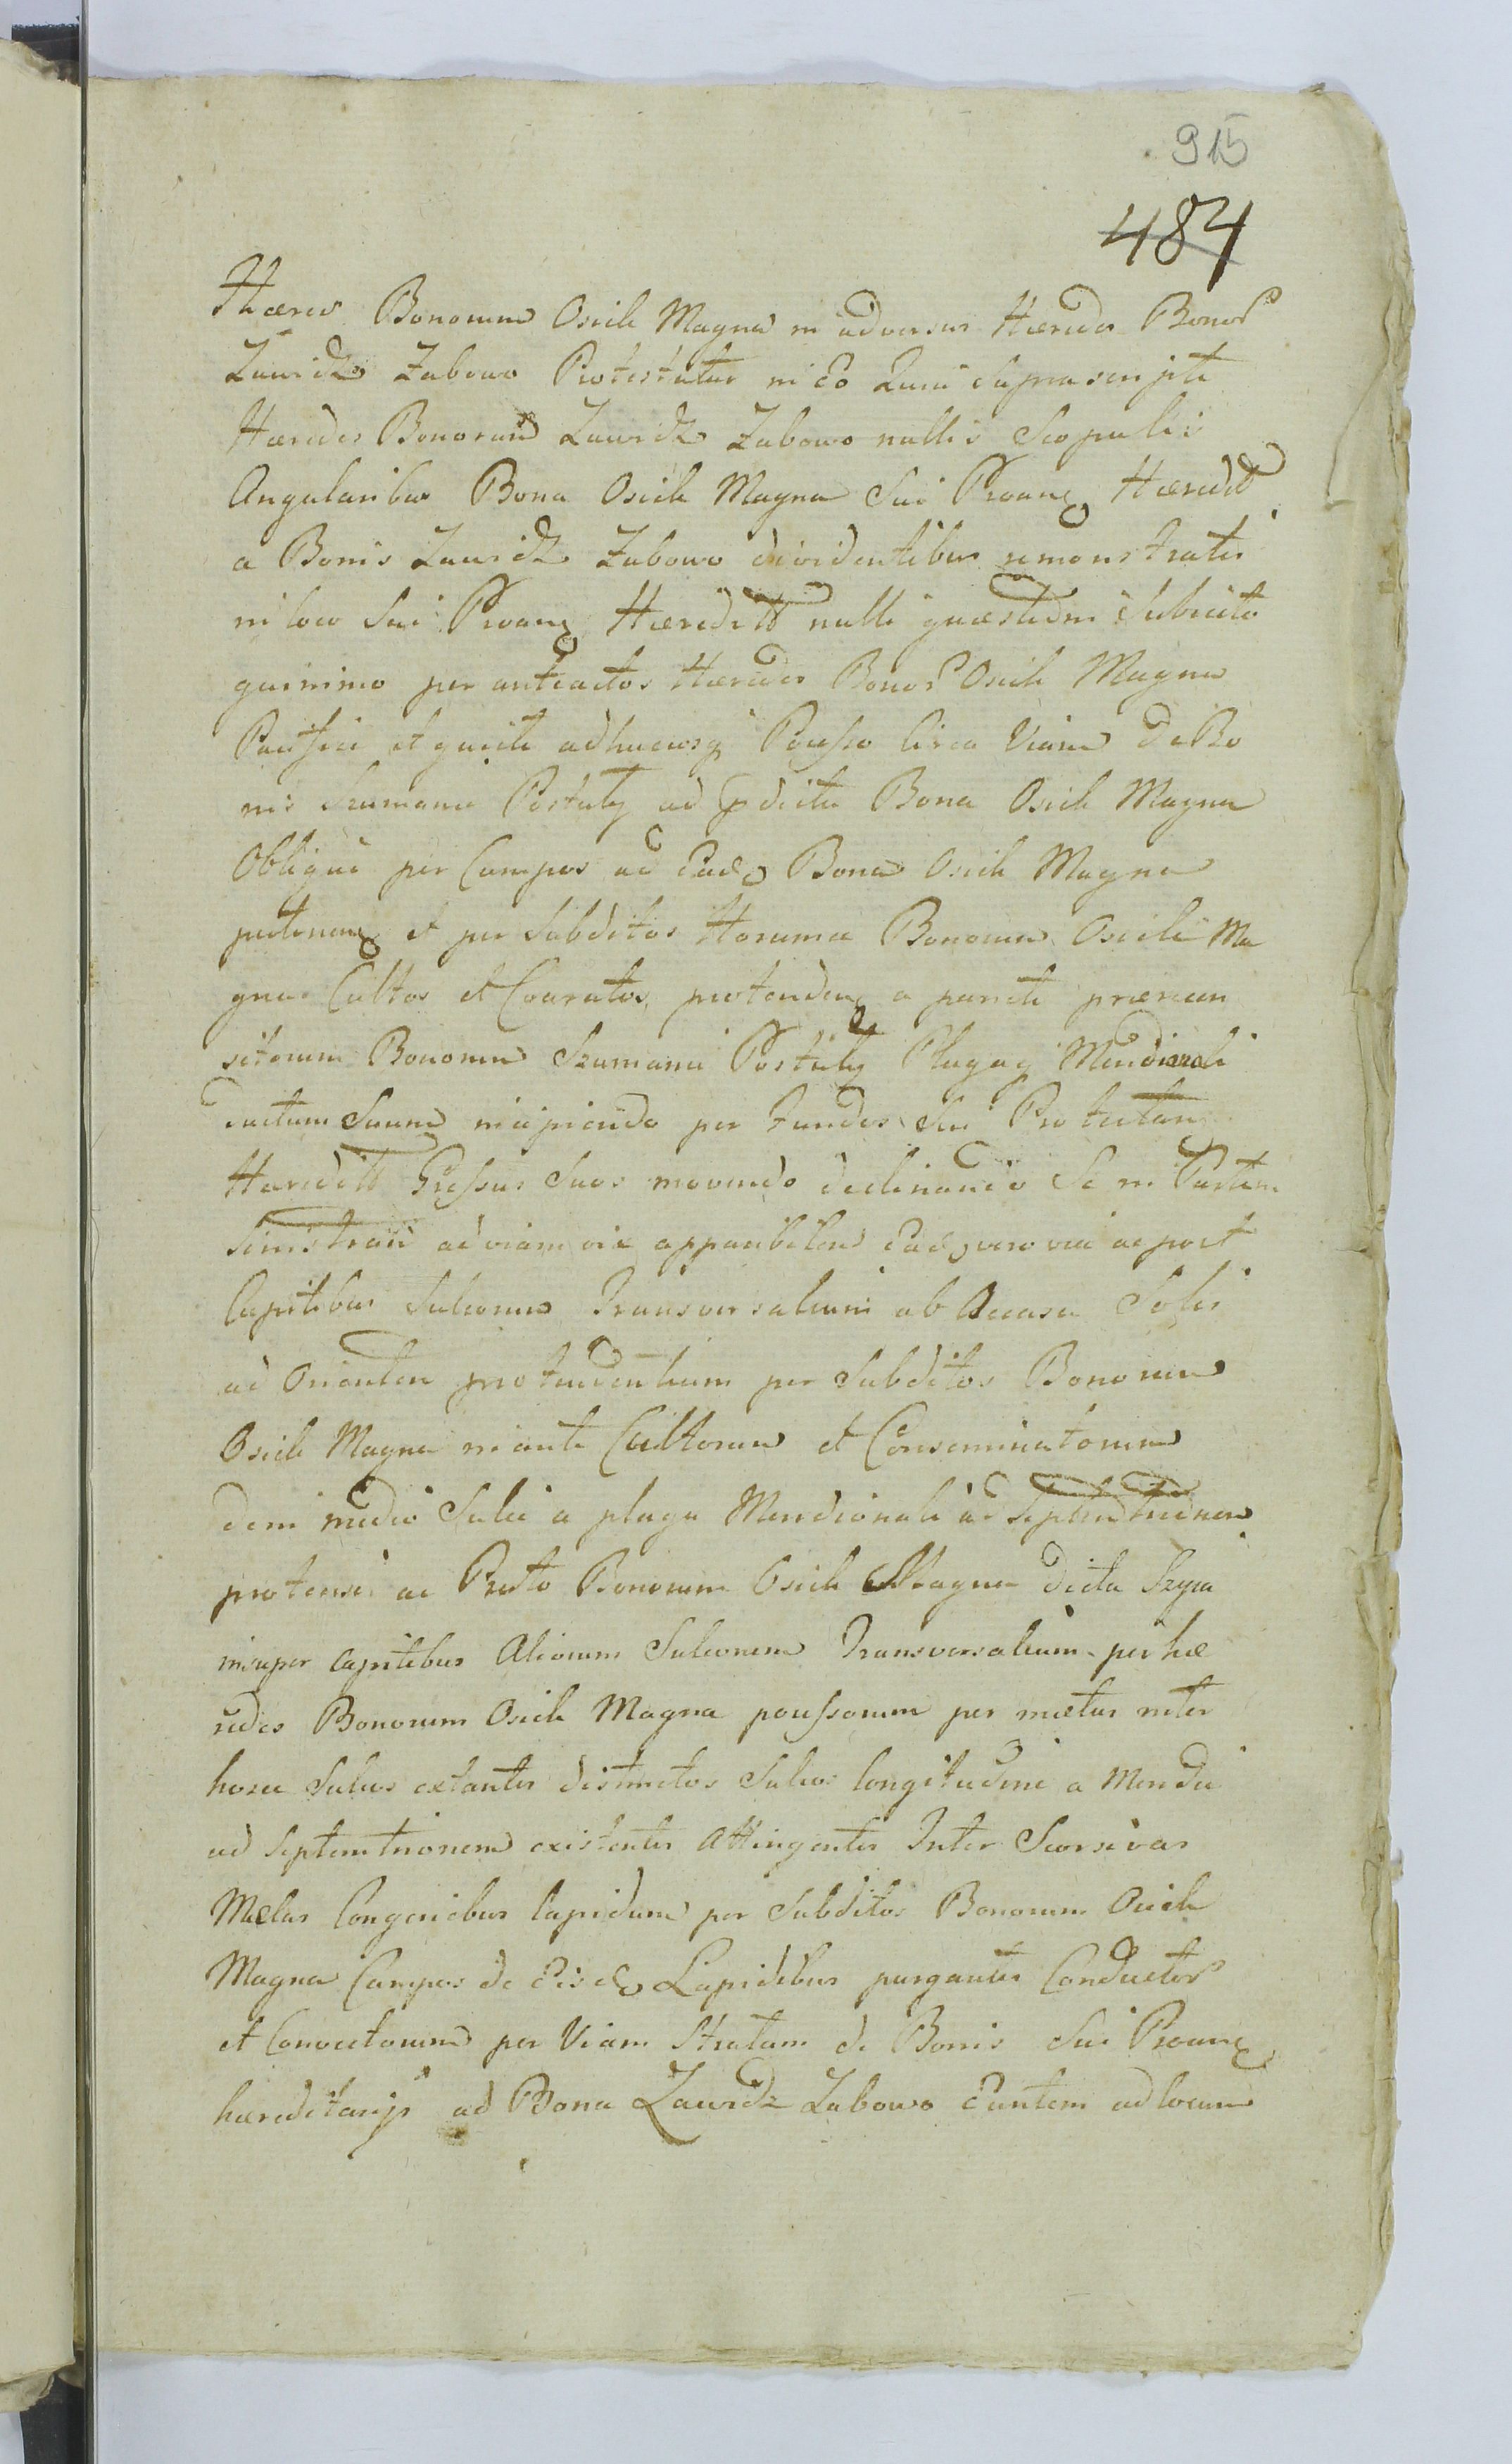 915
484
Hæres Bonorum Osiek Magna in adversus Hæredes Bonor
Zawidz Zabowo Protestatur in eo Quia Suprascripti
Hæredes Bonorum Zawidz Zabowo nullis Scopulis
Angularibus Bona Osiek Magna Sui Proan Hæredit
a Bonis Zawidz Zabowo dividentibus remonstratis
in loco Sui Proan Heredit nulli quæstioni Subiecto
quinimo per anteactos Hæredes Bonor Osiek Magna
Pacifice et quiete adhucusq Possesso Circa Viam de Bo
nis Szumanie Pustuły ad pdicta Bona Osiek Magna
Oblique per Campos ad Ead Bona Osiek Magna
pertinen et per Subditos Horumce Bonorum Osiek Ma
gna Cultos et Exaratos, protenden a pariete prærecen
sitorum Bonorum Szumanie Pustuły Plagaq Meridionali
ductum Suum incipiendo per Fundos Sui Protestan
Heredit Gressus Suos movendo declinando Se in Partem
Sinistram ad viam vix apparibilem Ead vero via ac post
Capitibus Sulcorum Transversalium ab Occasu Solis
ad Orientem protendentium per Subditos Bonorum
Osiek Magna in ante Cultorum et Conseminatorum
dein medio Sulci a plaga Meridionali ad Septentrionem
protensi ac Prato Bonorum Osiek Magna dicta Szyia
insuper Capitibus Aliorum Sulcorum Transversalium per hæ
redes Bonorum Osiek Magna possessorum per metas inter
hosce Sulcos extantes distinctos Sulcos longitudine a Meridie
ad Septemtrionem existentes Attingentes Inter Seorsivas
Metas Congeriebus lapidum per Subditos Bonorum Osiek
Magna Campos de Eisd Lapidibus purgantes Conductor
et Convectorum per Viam Stratam de Bonis Sui Proan
hæreditarijs ad Bona Zawidz Zabowo Euntem ad locum